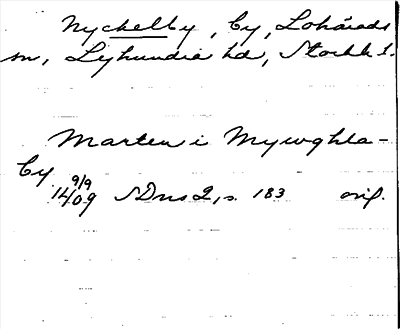 Nyckelby, by, Lohärads
sn, Lyhundra hd, Stockh l.
Marten i Mywghla-
by
9/9
1409 SDns 2, s. 183 orig.